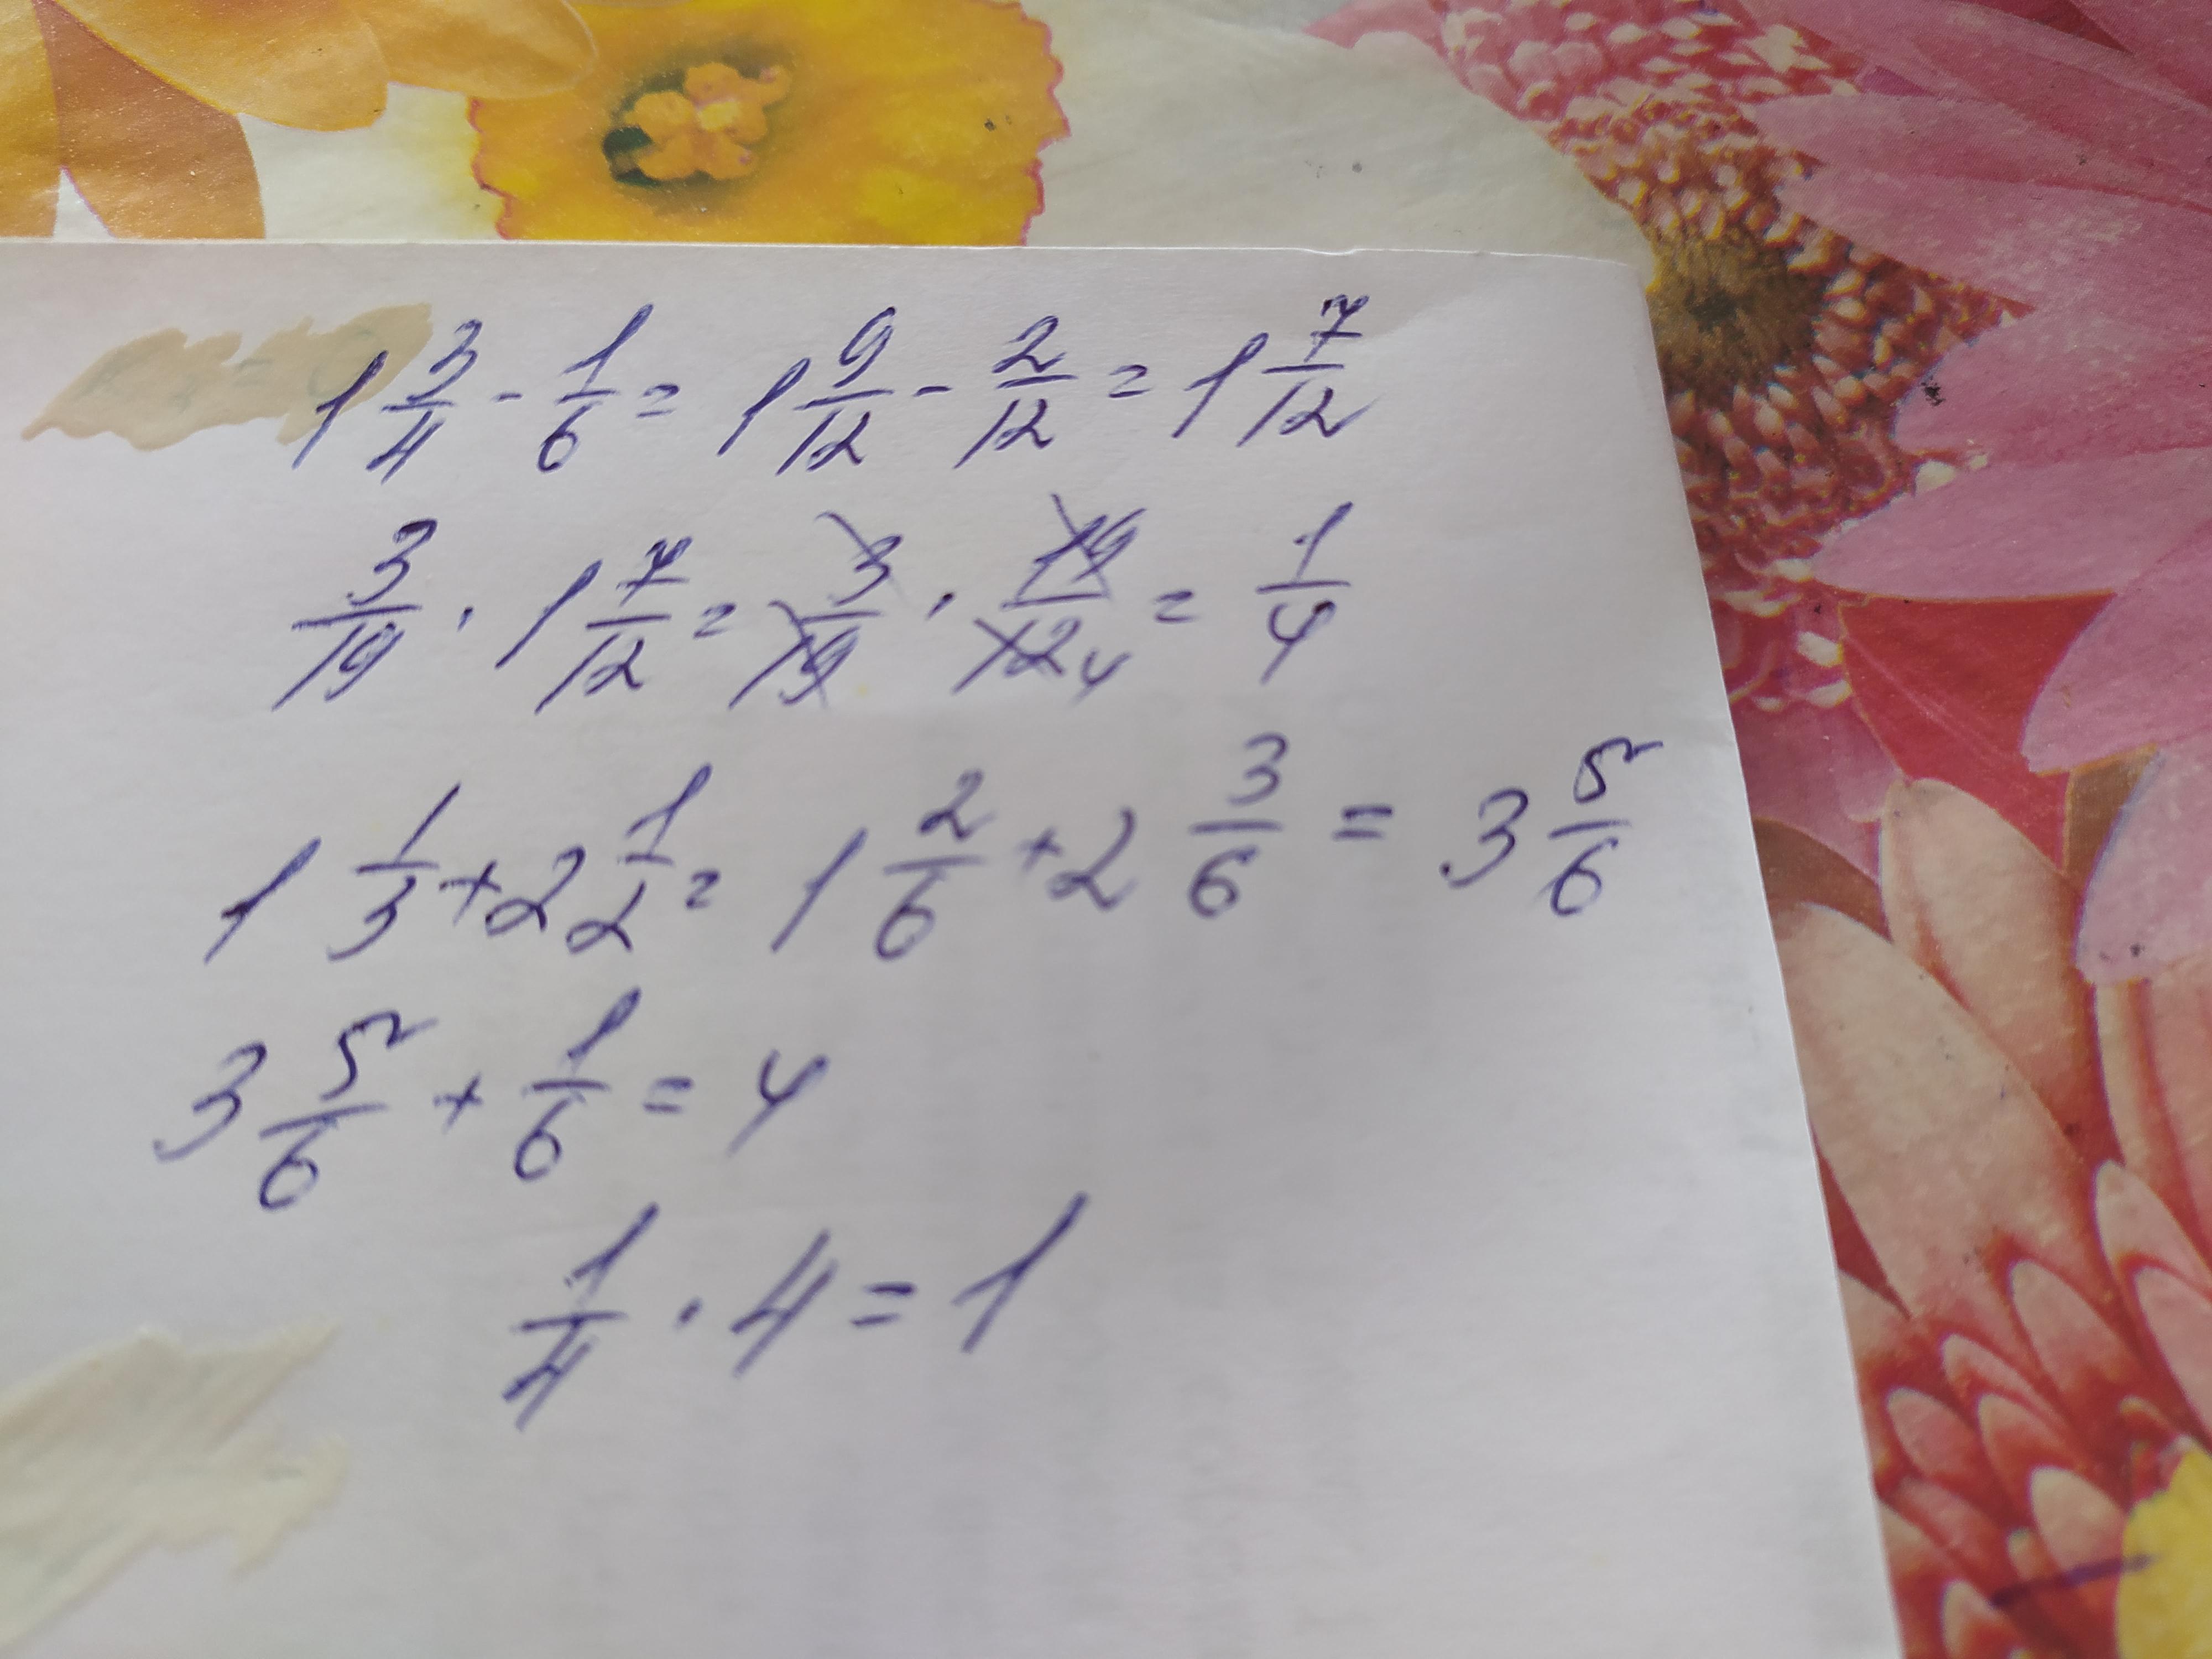 1 3/4 - 1/6 = 1 9/12 - 2/12 = 1 7/12
3/19 · 1 7/12 = 3/19 · 19/12 4 = 1/4
1 1/3 + 2 1/2 = 1 2/6 + 2 3/6 = 3 5/6
3 5/6 + 1/6 = 4
1/4 · 4 = 1